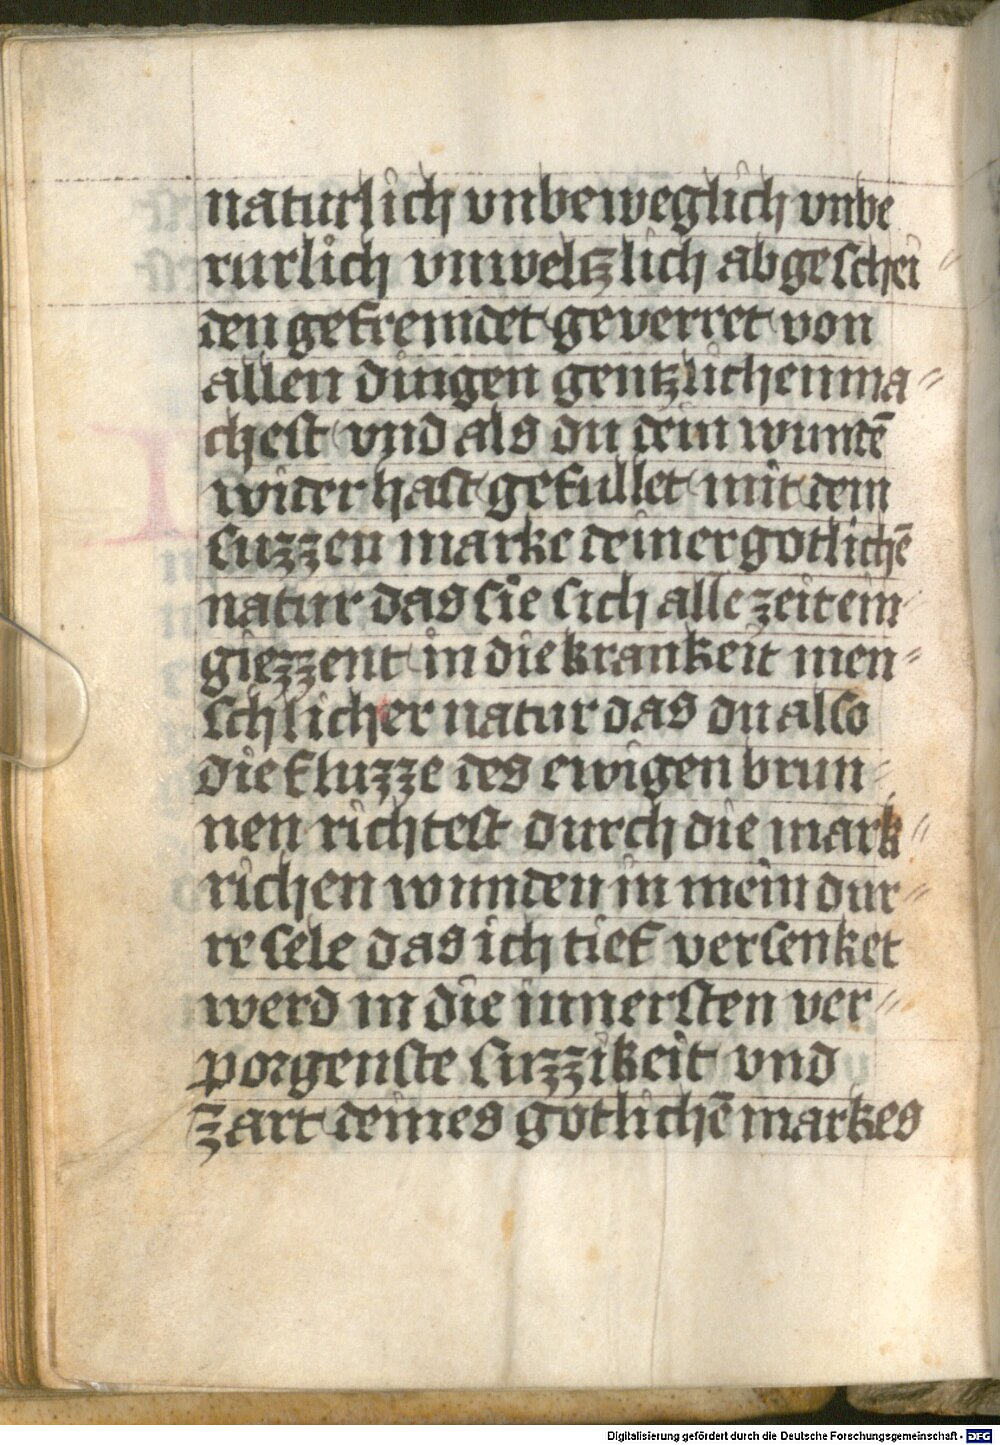 naturlich vnbeweglich vnbe
rurlich vnweltzlich abgeschei⸗
den gefremdet geverret von
allen dingen gentzlichen ma⸗
chest vnd als du dein wundē
wider hast gefullet mit dem
suzzen marke deiner gotlichē
natur das sie sich allezeit ein⸗
giezzent in die krankeit men⸗
schlicher natur das du also
die fluzze des ewigen brun⸗
nen richtest durch die mark⸗
richen wunden in mein dur⸗
re sele das ich tief versenket
werd in die innersten ver⸗
porgenste suzzikeit vnd
zart deines gotlichē markes
Digitalisierung gefördert durch die Deutsche Forschungsgemeinschaft - DFG